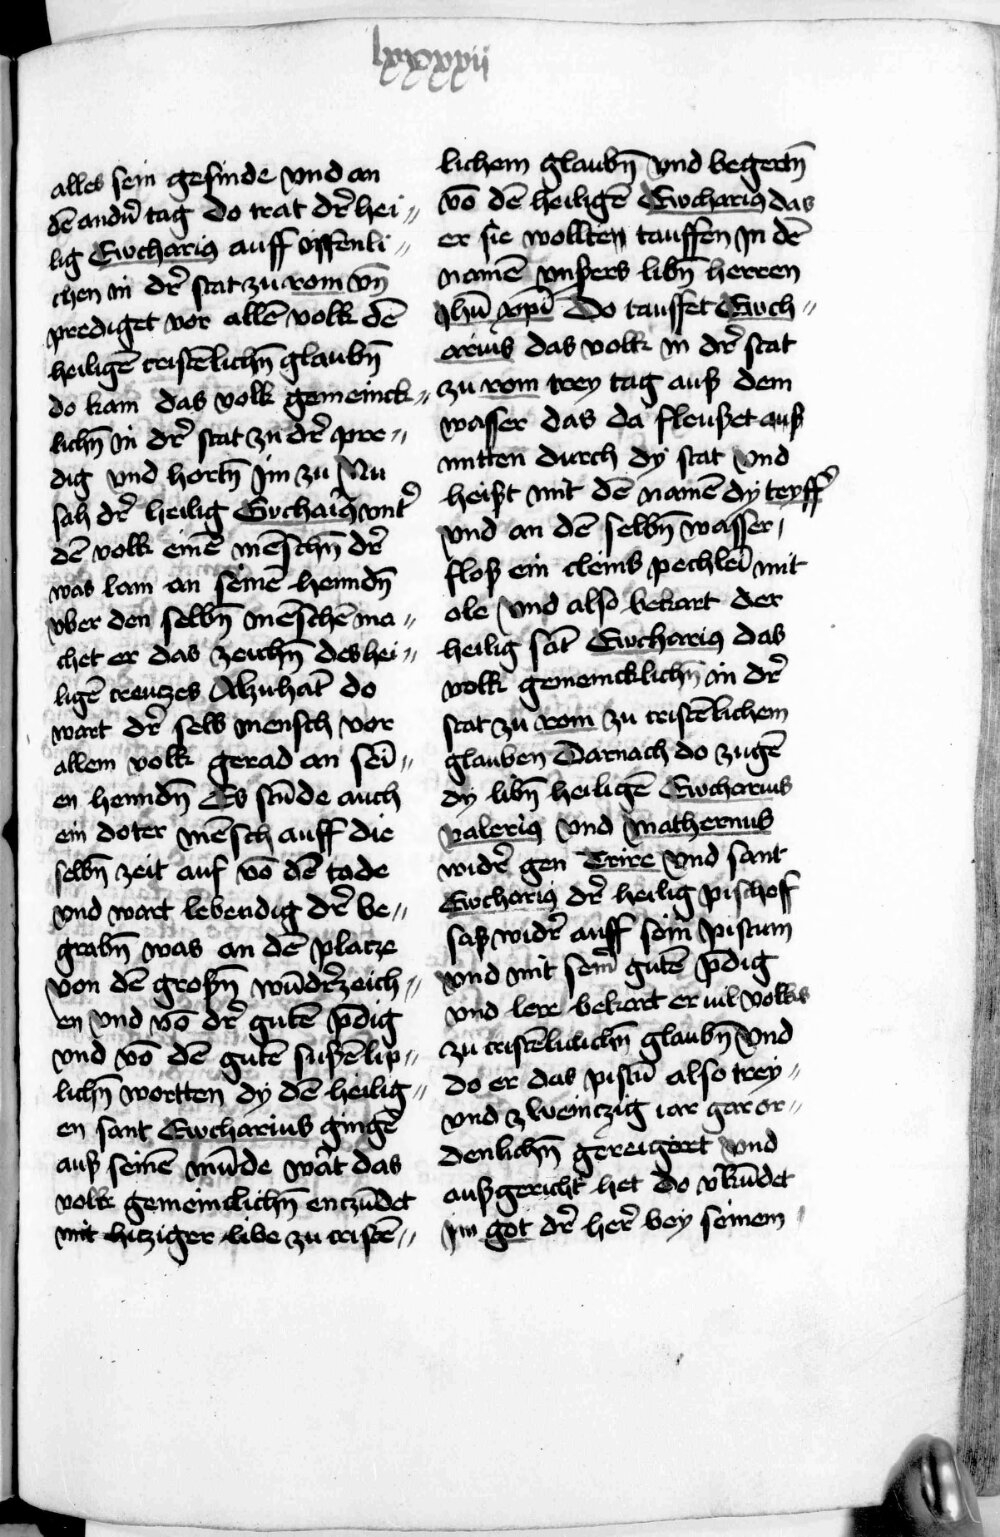 lxxxxxii
alles sein gesinde vnd an
dē andn̄ tag do trat dr̄ hei〃
lig Ewcharig auff offenli〃
chen in dr̄ stat zu rom vn̄
prediget vor allē volk dē
heiligē cristēlichn̄ glaubn̄
do kam das volk gemeinck〃
lichn̄ in dr̄ stat zu dr̄ pre〃
dig vnd hortn̄ Im zu Nu
sah dr̄ heilig vnt̄
dē volk einē mēschn̄ dr̄
was lam an seinē henndn̄
vber den selbn̄ mēschē ma〃
chet er das zeichn̄ des hei〃
ligē creutzes Alzuhāt do
wart dr̄ selb mensch vor
allem volk gerad an sei̅〃
en henndn̄ Es stūde auch
ein doter mēsch auff die
selbn̄ zeit auf vō dē tode
vnd wart lebendig dr̄ be〃
grabn̄ was an dē platze
von dē grosn̄ wūdr̄zeich〃
en vnd vō dr̄ gutē p̄dig
vnd vō dē gutē sußē lip〃
lichn̄ wortten dy dē heilig〃
en sant Ewcharius gingē
auß seinē mūde wāt das
volk gemeincklichn̄ enczūdet
mit hitziger libe zu cristē〃
lichem glaubn̄ vnd begertn̄
vō dē heiligē Ewcharig das
er sie wollten tauffen In dē
namē vnsers libn̄ herren
Ihū xp̄i Do tauffet Ewch〃
arius das volk in dr̄ stat
zu rom trey tag auß dem
wasser das da fleußet auß
mitten durch dy stat vnd
heist mit dē namē dy teyff̄
vnd an dē selbn̄ wasser
floß ein cleins pechlei̅ mit
ole vnd also bekart der
heilig sāt Ewcharig das
volk gemeincklichn̄ in dr̄
stat zu rom zu cristēlichem
glauben Darnach do zugē
dy libn̄ heiligē Ewcharius
valerig vnd mathernus
widr̄ gen Trire vnd sant
Ewcharig dr̄ heilig pischof
saß widr̄ auff sein pistum
vnd mit sem̄ gutē p̄dig
vnd lere bekart er vil volks
zu glaubn̄ vnd
do er das pistū also trey〃
vnd zweinczig iar gar or〃
denlichn̄ vnd
außgericht het Do vkūdet
Im got dr̄ her̄ bey seinem